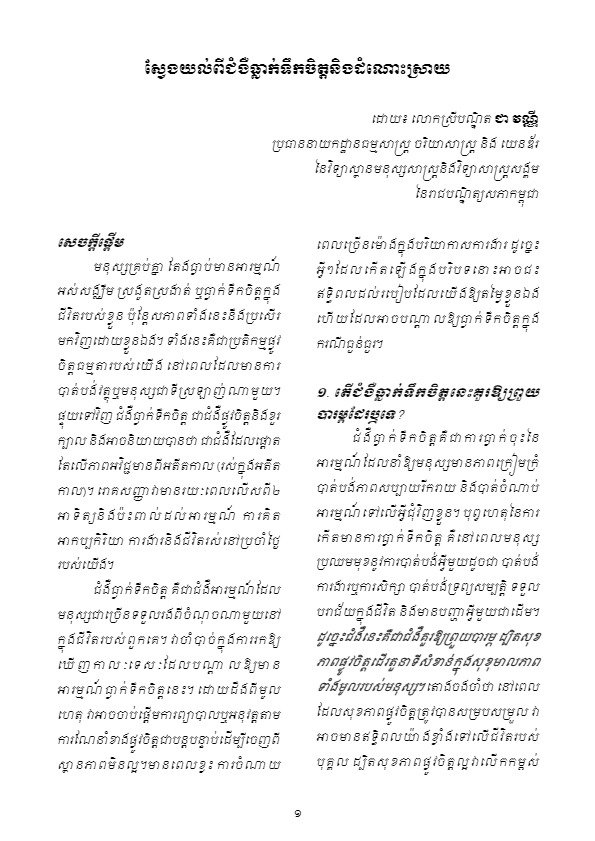 ស្វែងយល់ពីជំងឺធ្លាក់ទឹកចិត្តនិងដំណោះស្រាយ
ដោយ៖ លោកស្រីបណ្ឌិត ជា វណ្ណី
ប្រធាននាយកដ្ឋានធម្មសាស្ត្រ ចរិយាសាស្ត្រ និង យេនឌ័រ
នៃវិទ្យាស្ថានមនុស្សសាស្ត្រនិងវិទ្យាសាស្ត្រសង្គម
នៃរាជបណ្ឌិត្យសភាកម្ពុជា
សេចក្តីផ្តើម
មនុស្សគ្រប់គ្នា តែងធ្លាប់មានអារម្មណ៍
អស់សង្ឃឹម ស្រងូតស្រងាត់ ឬធ្លាក់ទឹកចិត្តក្នុង
ជីវិតរបស់ខ្លួន ប៉ុន្តែសភាពទាំងនេះនឹងប្រសើរ
មកវិញដោយខ្លួនឯង។ ទាំងនេះគឺជាប្រតិកម្មផ្លូវ
ចិត្តធម្មតារបស់យើង នៅពេលដែលមានការ
បាត់បង់វត្ថុឬមនុស្សជាទីស្រឡាញ់ណាមួយ។
ផ្ទុយទៅវិញ ជំងឺធ្លាក់ទឹកចិត្ត ជាជំងឺផ្លូវចិត្តនិងខួរ
ក្បាល និងអាចនិយាយបានថា ជាជំងឺដែលផ្តោត
តែលើភាពអវិជ្ជមានពីអតីតកាល (រស់ក្នុងអតីត
កាល)។ រោគសញ្ញាវាមានរយៈពេលលើសពី២
អាទិត្យនិងប៉ះពាល់ដល់អារម្មណ៍ ការគិត
អាកប្បកិរិយា ការងារនិងជីវិតរស់នៅប្រចាំថ្ងៃ
របស់យើង។
ជំងឺធ្លាក់ទឹកចិត្ត គឺជាជំងឺអារម្មណ៍ដែល
មនុស្សជាច្រើនទទួលរងពីចំណុចណាមួយនៅ
ក្នុងជីវិតរបស់ពួកគេ។ វាចាំបាច់ក្នុងការរកឱ្យ
ឃើញកាលៈទេសៈដែលបណ្តាលឱ្យមាន
អារម្មណ៍ធ្លាក់ទឹកចិត្តនេះ។ ដោយដឹងពីមូល
ហេតុ វាអាចចាប់ផ្តើមការព្យាបាលឬអនុវត្តតាម
ការណែនាំខាងផ្លូវចិត្តជាបន្តបន្ទាប់ដើម្បីចេញពី
ស្ថានភាពមិនល្អ។មានពេលខ្លះ ការចំណាយ
ពេលច្រើនម៉ោងក្នុងបរិយាកាសការងារ ដូច្នេះ
អ្វីៗដែលកើតឡើងក្នុងបរិបទនោះអាចជះ
ឥទ្ធិពលដល់របៀបដែលយើងឱ្យតម្លៃខ្លួនឯង
ហើយដែលអាចបណ្តាលឱ្យធ្លាក់ទឹកចិត្តក្នុង
ករណីធ្ងន់ធ្ងរ។
១. តើជំងឺធ្លាក់ទឹកចិត្តនេះគួរឱ្យព្រួយ
បារម្ភដែរឬទេ?
ជំងឺធ្លាក់ទឹកចិត្តគឺជាការធ្លាក់ចុះនៃ
អារម្មណ៍ដែលនាំឱ្យមនុស្សមានភាពក្រៀមក្រំ
បាត់បង់ភាពសប្បាយរីករាយ និងបាត់ចំណាប់
អារម្មណ៍ទៅលើអ្វីជុំវិញខ្លួន។ បុព្វហេតុនៃការ
កើតមានការធ្លាក់ទឹកចិត្ត គឺនៅពេលមនុស្ស
ប្រឈមមុខនូវការបាត់បង់អ្វីមួយដូចជា បាត់បង់
ការងារឬការសិក្សា បាត់បង់ទ្រព្យសម្បត្តិ ទទួល
បរាជ័យក្នុងជីវិត និងមានបញ្ហាអ្វីមួយជាដើម។
ដូច្នេះជំងឺនេះគឺជាជំងឺគួរឱ្យព្រួយបារម្ភ ដ្បិតសុខ
ភាពផ្លូវចិត្តដើរតួនាទីសំខាន់ក្នុងសុខុមាលភាព
ទាំងមូលរបស់មនុស្ស។ តោងចងចាំថា នៅពេល
ដែលសុខភាពផ្លូវចិត្តត្រូវបានសម្របសម្រួល វា
អាចមានឥទ្ធិពលយ៉ាងខ្លាំងទៅលើជីវិតរបស់
បុគ្គល ដ្បិតសុខភាពផ្លូវចិត្តល្អវាលើកកម្ពស់
១